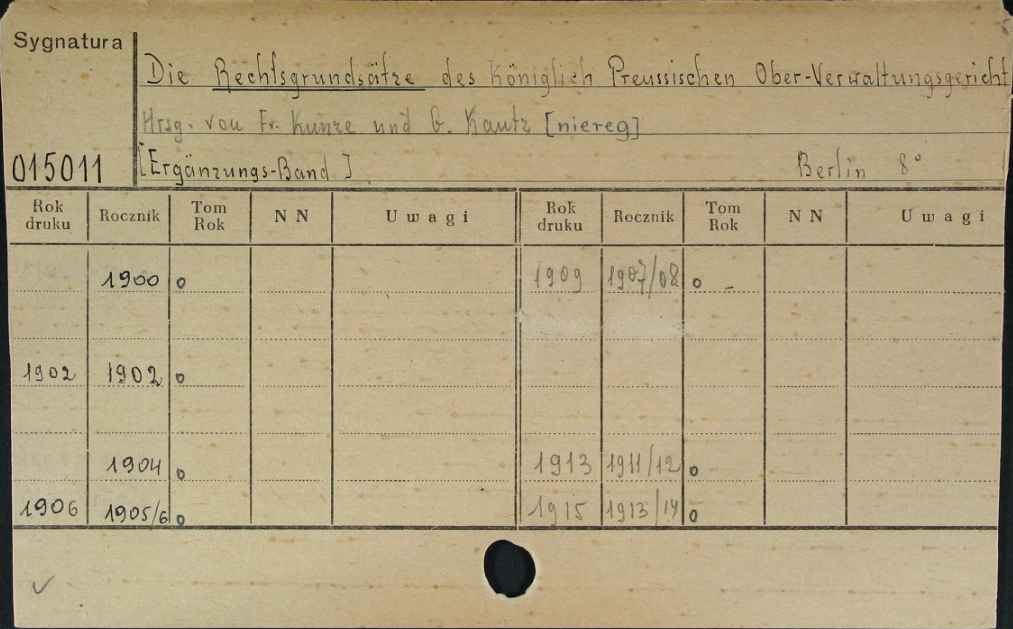 Sygnatura
Die Rechtsgrundsätze des Königlich Preussischen Ober-Verwaltungsgericht
Hrsg. von Fr. Kunze und G. Kautz [niereg]
015011 [Ergänzungs-Band] Berlin 8°
Rok druku Rocznik Tom Rok NN Uwagi Rok druku Rocznik Tom Rok NN Uwagi
1900 o 1909 1907/08 o -
1902 1902 o
1904 o 1913 1911/12 o
1906 1905/6 o 1915 1913/14 o